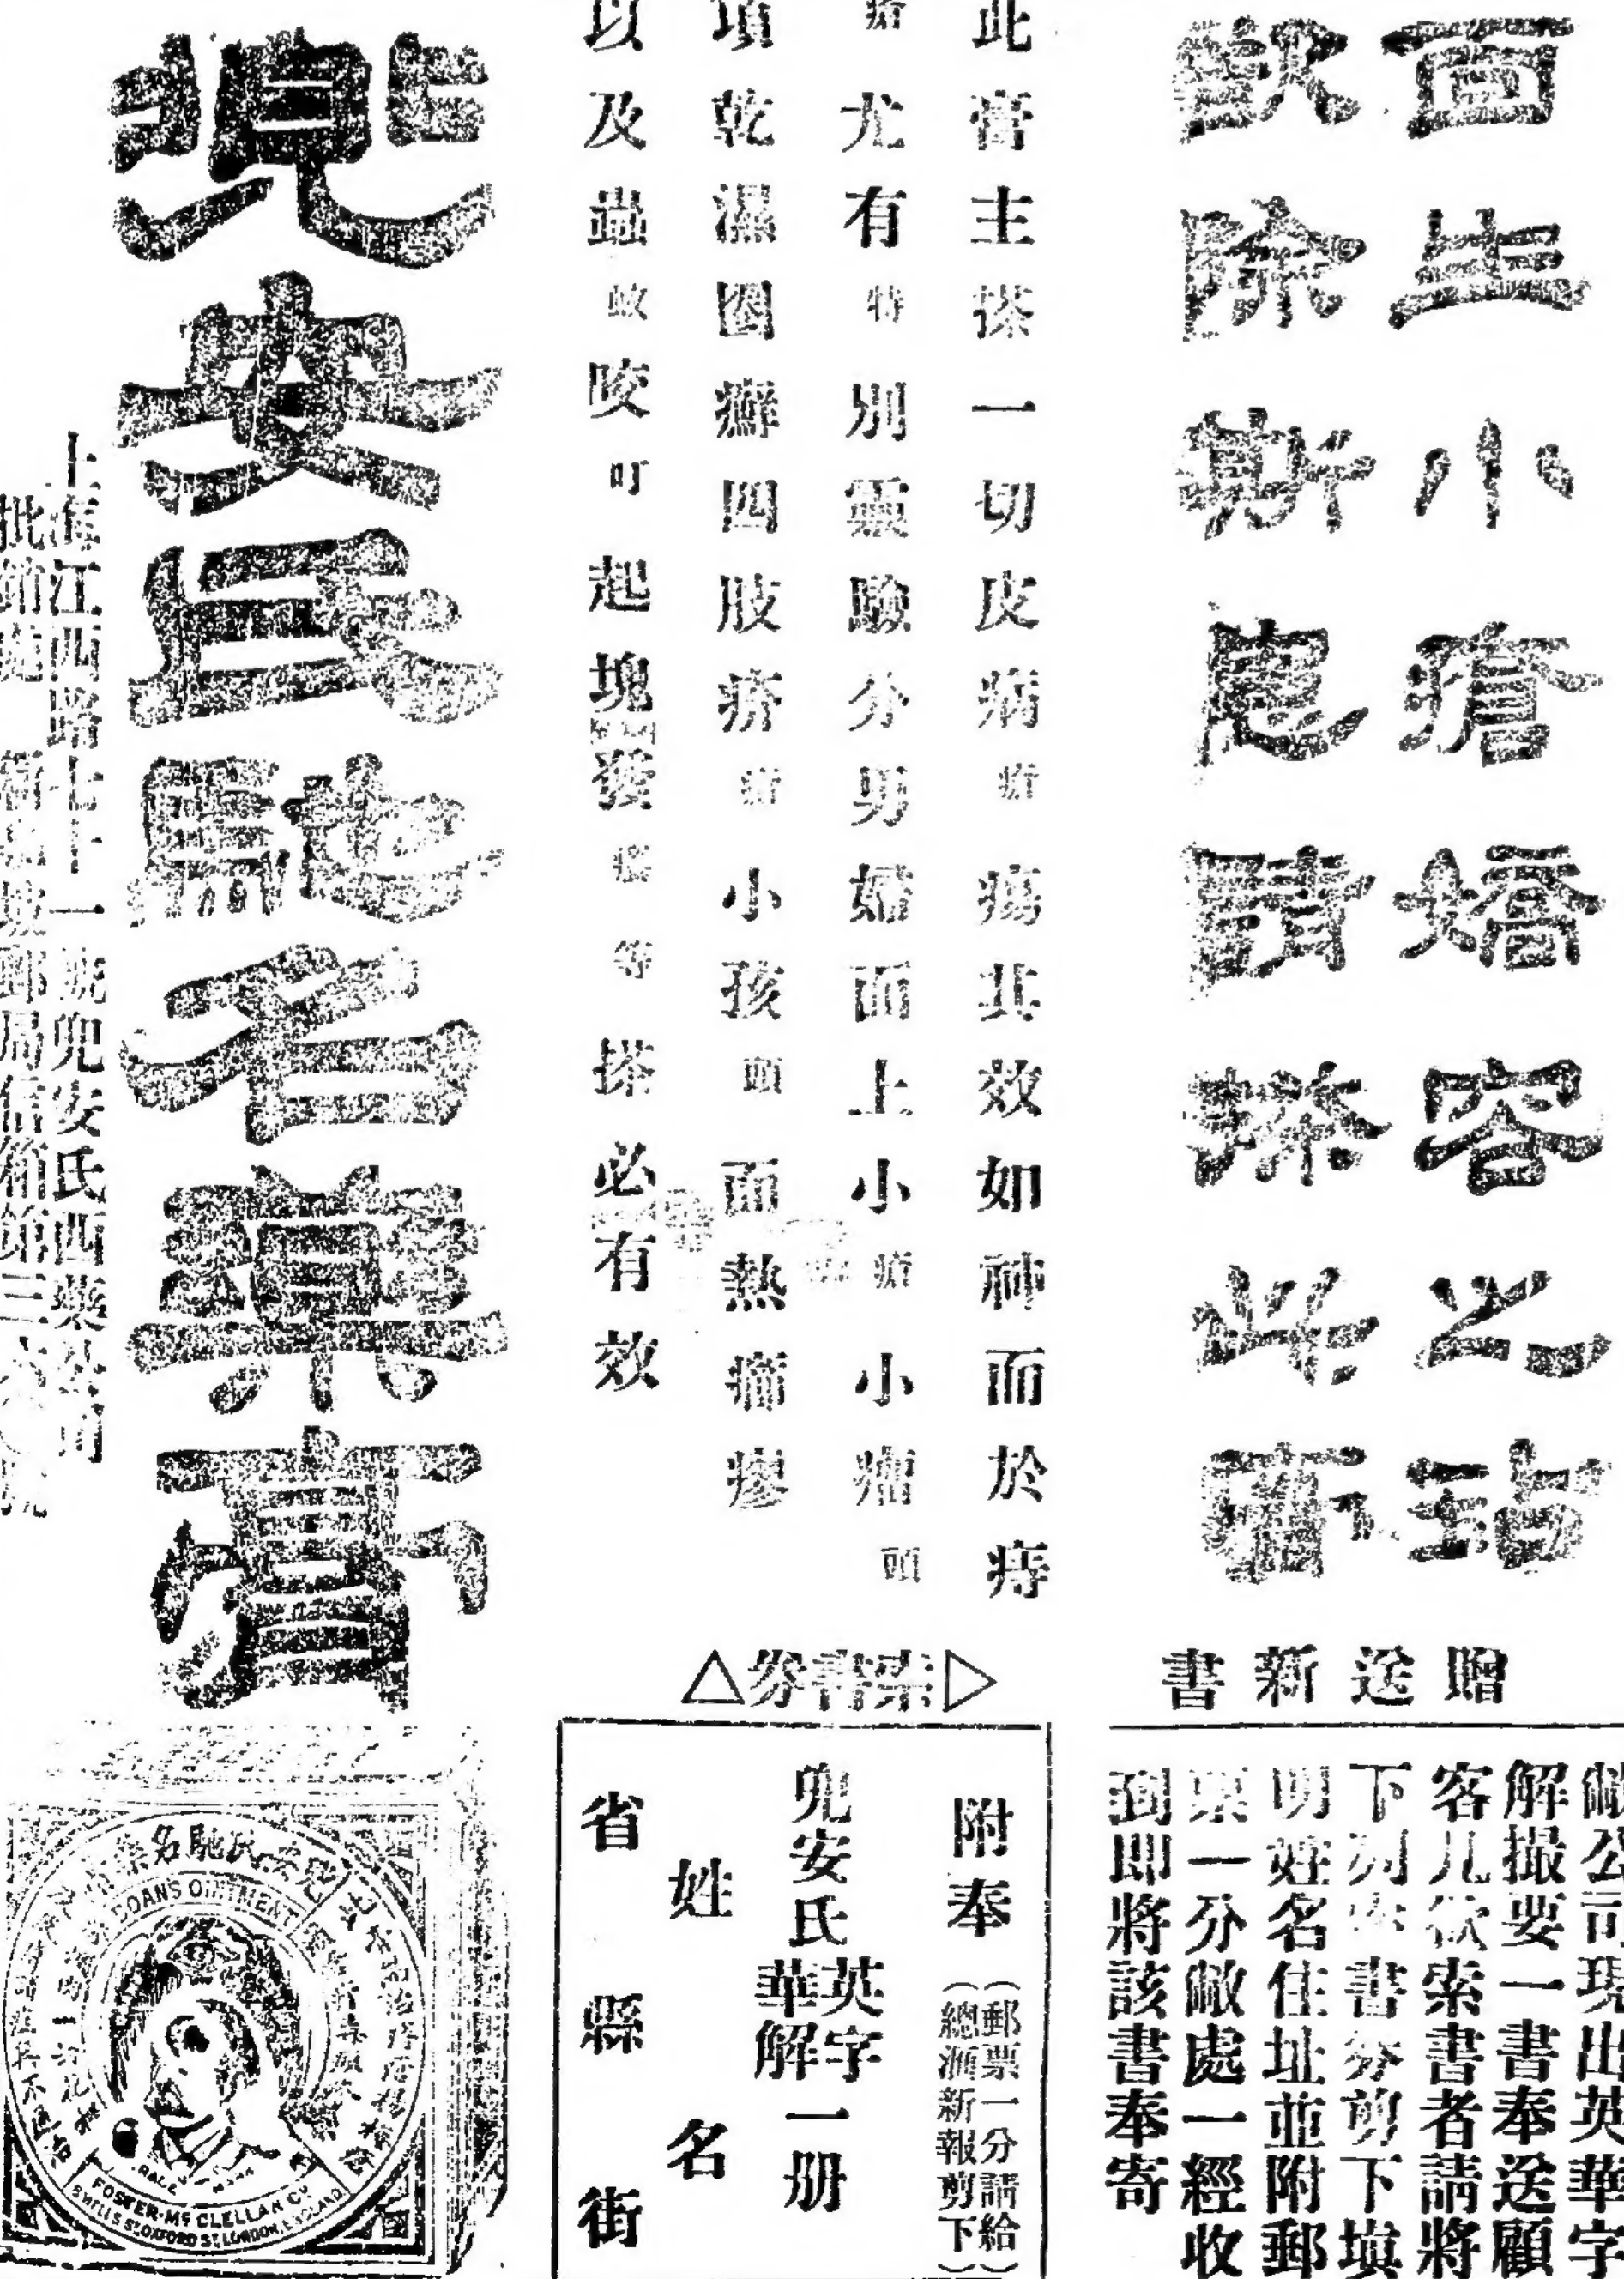 面生小瘡嬌容之玷
欲除斯患請搽此膏
此膏主搽一切皮病瘡瘍其效如神而於痔
瘡尤有特別靈驗分男婦面上小瘡小癤頭
項乾濕圈癬四肢疥瘡小孩頭面熱癤痧
以及蟲蚊咬叮起塊發癢等搽必有效
兜安氏馳名藥膏
上海江西路七十一號兜安氏西藥公司
郵局信箱第三
贈送新書
敝公司現出英華字
解撮要一書奉送顧
客凡欲索書者請將
下列索書券剪下填
明姓名住址並附郵
票一分敝處一經收
到即將該書奉寄
索書券
附奉（郵票一分請給）
（總滙新報剪下）
兜安氏英字華解一册
姓名
省縣街
兜安氏馳名藥膏
DOANS OINTMENT
FOSTER-McCLELLAN Co
8 WELLS ST. OXFORD ST. LONDON, ENGLAND